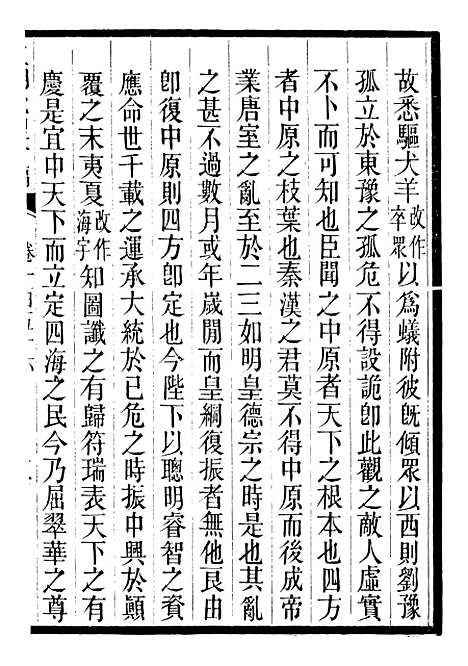 故悉驅犬羊改作卒眾以為蟻附彼旣傾眾以西則劉豫
孤立於東豫之孤危不得設詭卽此觀之敵人虛實
不卜而可知也臣聞之中原者天下之根本也四方
者中原之枝葉也秦漢之君莫不得中原而後成帝
業唐室之亂至於二三如明皇德宗之時是也其亂
之甚不過數月或年歲閒而皇綱復振者無他艮由
卽復中原則四方卽定也今陛下以聰明睿智之資
應命世千載之運承大統於已危之時振中興於顚
覆之末夷夏改作海宇知圖讖之有歸符瑞表天下之有
慶是宜中天下而立定四海之民今乃屈翠華之尊